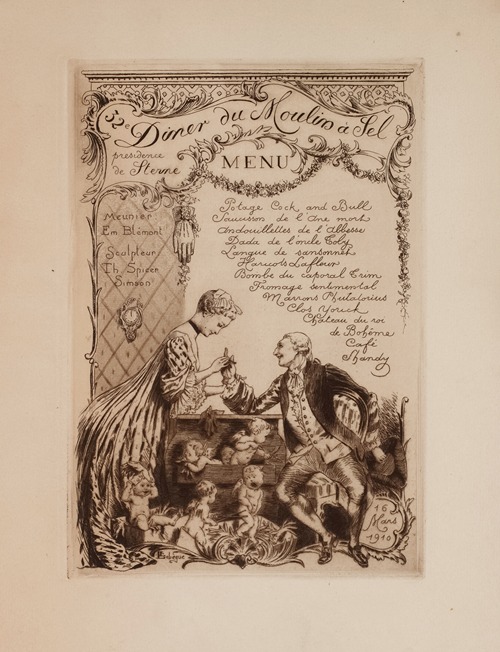 52e Dîner du Moulin à Sel
présidence
de Sterne
MENU
Meunier
Em. Blémont
Sculpteur
Th. Spicer
Simson
Potage Cock and Bull
Saucisson de l'Ane mort
Andouillettes de l'Abbesse
Dada de l'oncle Toby
Langue de sansonnet
Haricots Lafleur
Bombe du caporal Trim
Fromage sentimental
Marrons Phutatorius
Clos Yorick
Château du roi
de Bohême
Café
Shandy
16
Mars
1910